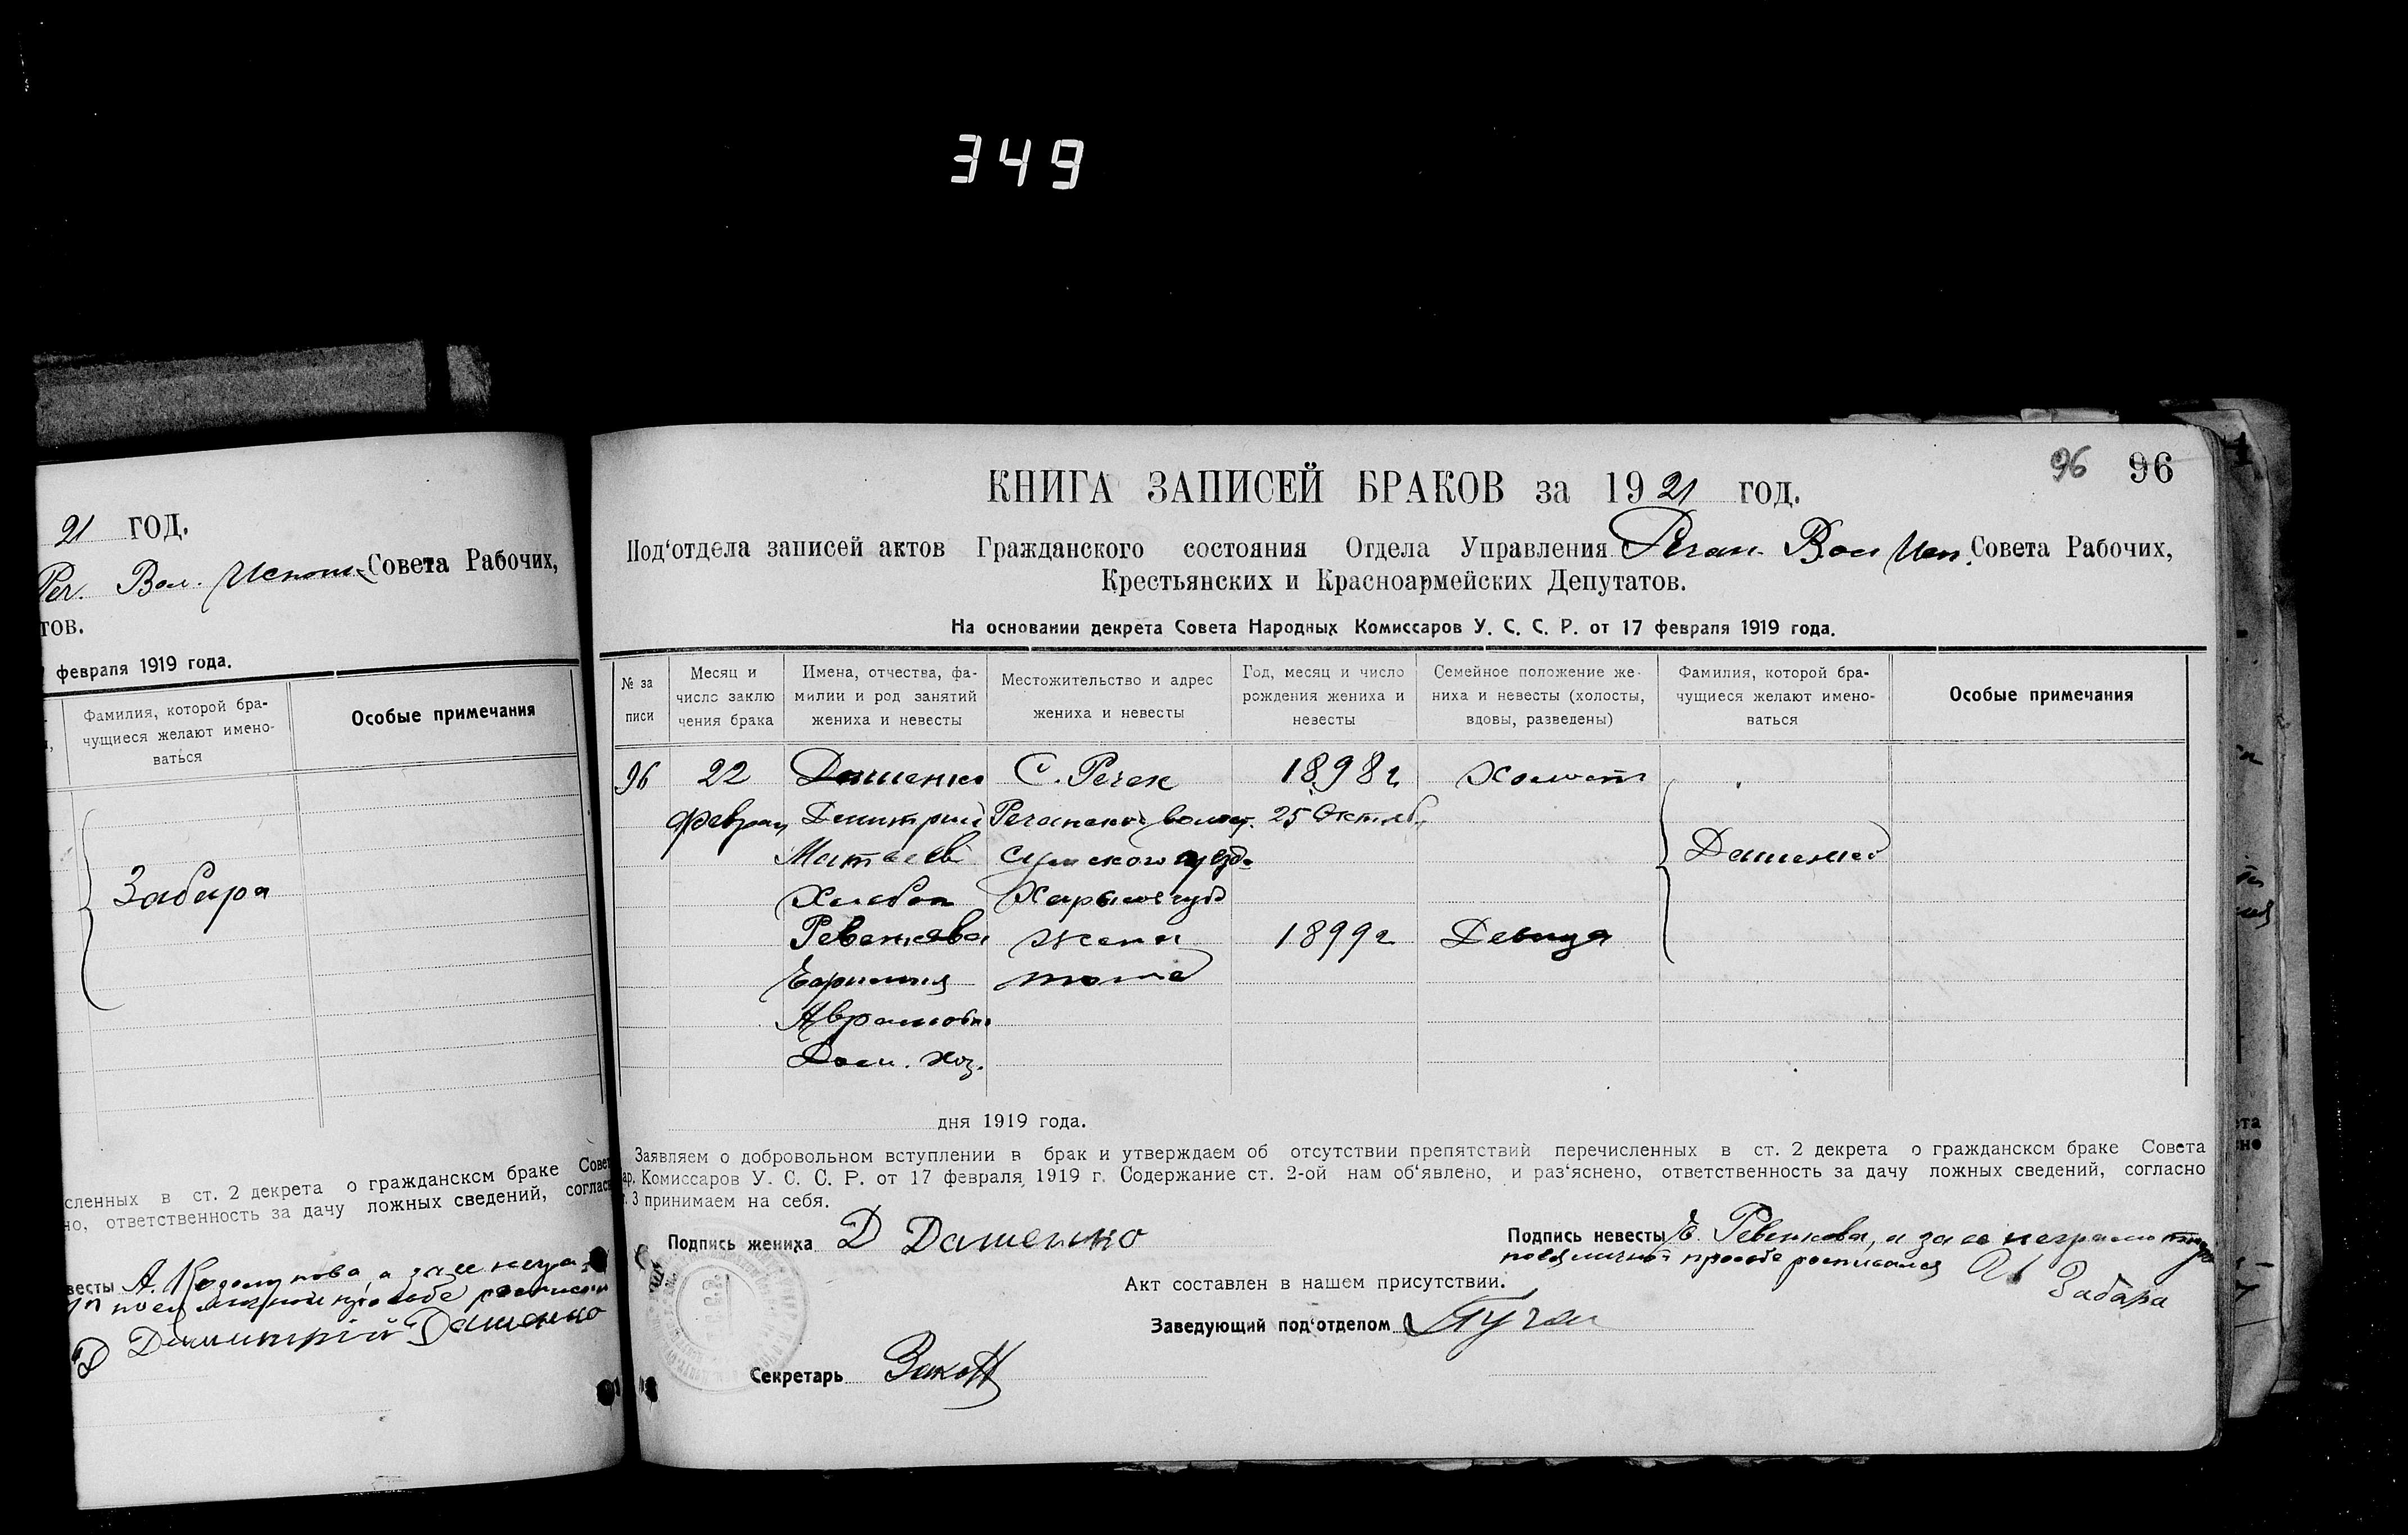 349
21 ГОД.
Реч. Вол. Исполк. Совета Рабочих,
тов.
февраля 1919 года.
Фамилия, которой бра-
чущиеся желают имено-
ваться
Особые примечания
Забара
сленных в ст. 2 декрета о гражданском браке Совет
но, ответственность за дачу ложных сведений, соглас
весты А. Козолупова, а за ее негра
по ея личной просьбе росписался
Димитрій Дашенко
96 96
КНИГА ЗАПИСЕЙ БРАКОВ за 1921 год.
Под‘отдела записей актов Гражданского состояния Отдела Управления Речан. Вол Исп. Совета Рабочих,
Крестьянских и Красноармейских Депутатов.
На основании декрета Совета Народных Комиссаров У. С. С. Р. от 17 февраля 1919 года.
№ за
писи
Месяц и
число заклю
чения брака
Имена, отчества, фа-
милии и род занятий
жениха и невесты
Местожительство и адрес
жениха и невесты
Год, месяц и число
рождения жениха и
невесты
Семейное положение же-
ниха и невесты (холосты,
вдовы, разведены)
Фамилия, которой бра-
чущиеся желают имено-
ваться
Особые примечания
96 22 Дашенко С. Речек 1898 г Холост
Феврал Димитрий Речанской волост. 25 Октяб.
Матвеев Сумского уезда Дашенко
Хлебоп Харьков губ
Ревенкова жена 1899 г Девица
Ефимия тоже
Аврамовна
Дом. хоз.
дня 1919 года.
Заявляем о добровольном вступлении в брак и утверждаем об отсутствии препятствий перечисленных в ст. 2 декрета о гражданском браке Совета
ар. Комиссаров У. С. С. Р. от 17 февраля 1919 г. Содержание ст. 2-ой нам об‘явлено, и раз‘яснено, ответственность за дачу ложных сведений, согласно
. 3 принимаем на себя.
Подпись жениха Д Дашенко
Подпись невесты Е. Ревенкова, а за ее неграмотную
по ея личной просьбе росписался
Забара
Акт составлен в нашем присутствии.
Заведующий под‘отделом
Секретарь